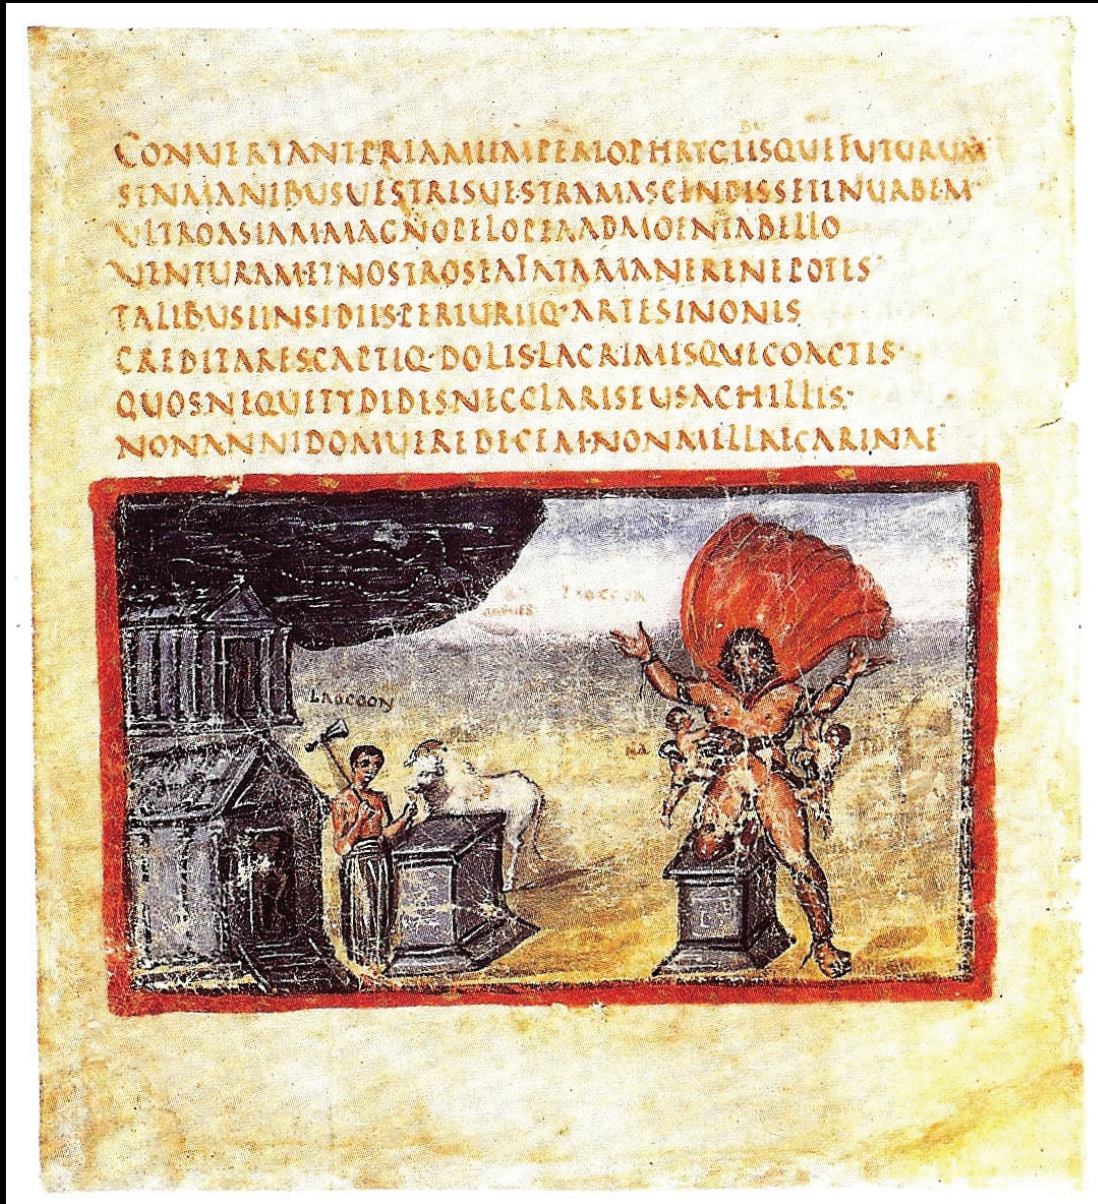 CONUERTANTPRIAMIIMPERIOPHRYGIISQUEFUTURUM
SINMANIBUSUESTRISUESTRAMASCENDISSETINURBEM·
ULTROASIAMMAGNOPELOPEAADMOENIABELLO
UENTURAM·ETNOSTROSEAFATAMANERENEPOTES·
TALIBUSINSIDIIS·PERIURIIQ·ARTESINONIS
CREDITARES·CAPTIQ·DOLIS·LACRIMISQUECOACTIS·
QUOSNEQUETYDIDESNECCLARISEUSACHILLIS·
NONANNIDOMUEREDECEM·NONMILLAECARINAE·
LAOCOON
ANGUES
LAOCOON